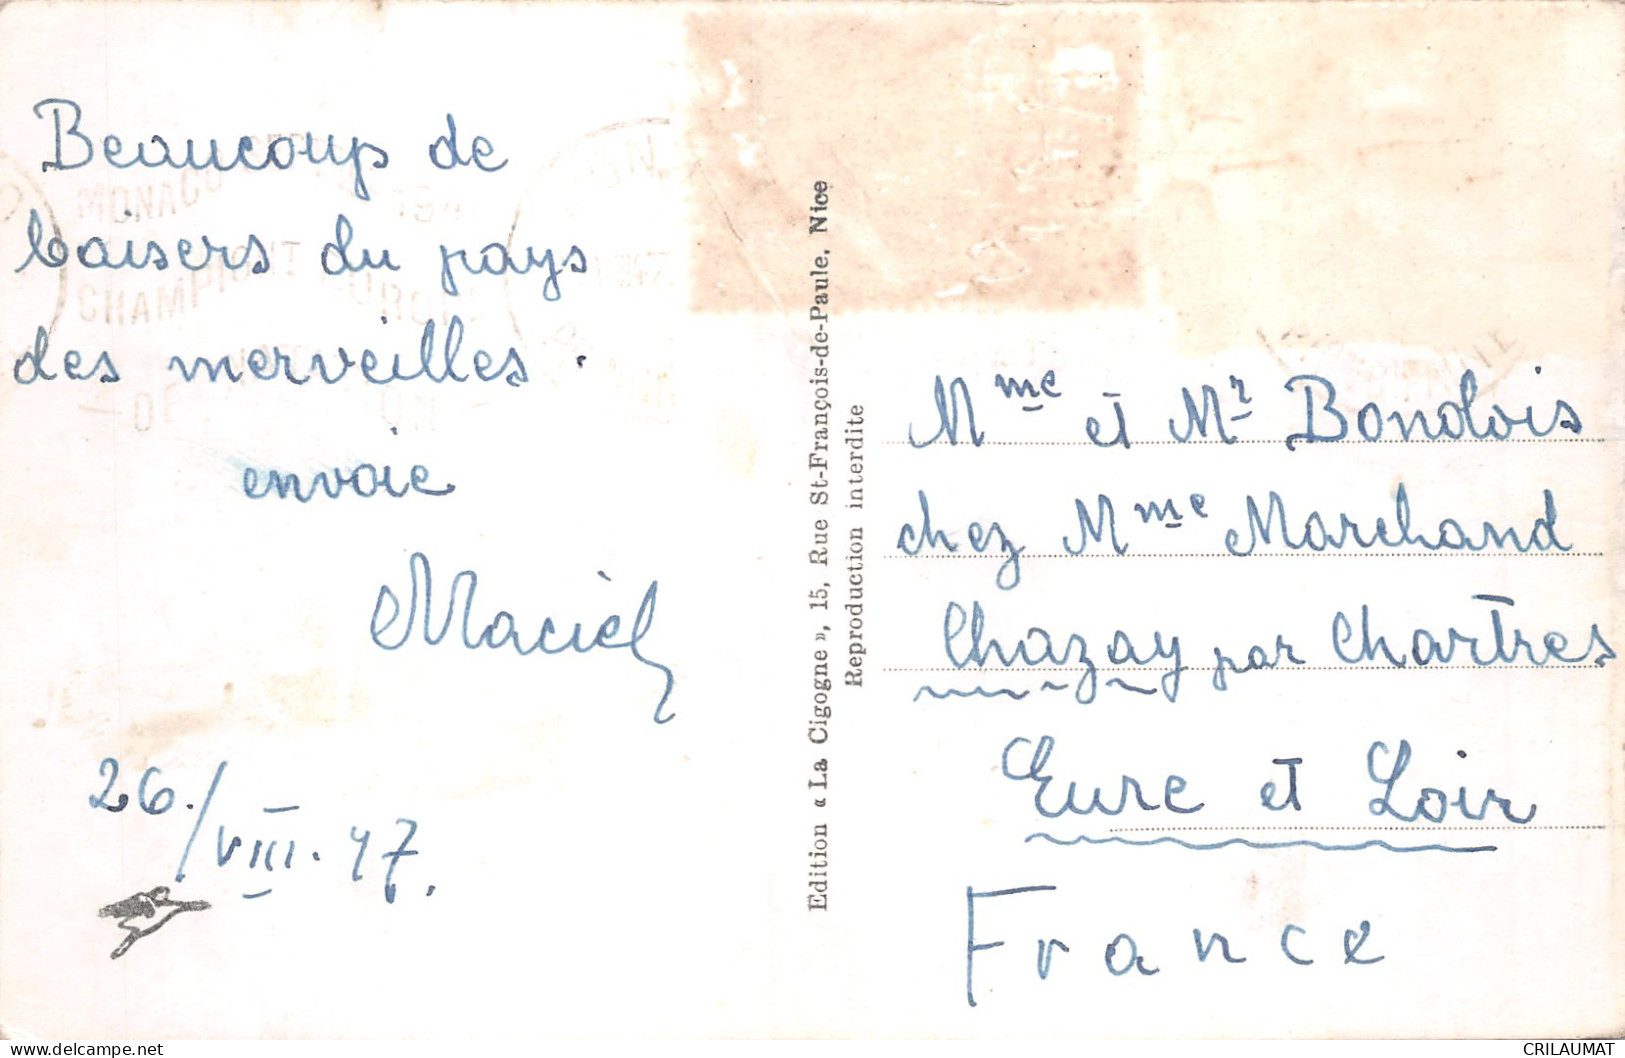 Beaucoup de
baisers du pays
des merveilles.
envoie
Maciel
26./VIII.47.
MONACO SEP 194
CHAMPIONT EUROPE
Edition « La Cigogne », 15, Rue St-François-de-Paule, Nice
Reproduction interdite
Mme et Mr Bondois
chez Mme Marchand
Chazay par Chartres
Eure et Loir
France
CRILAUMAT